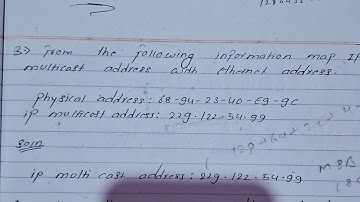 128 64 32
3.> From the following information map IP
multicast address with ethernet address.
physical address: 68-94-23-40-69-9C
ip multicast address: 229.122.54.99
soln
128 64 32
MSB
ip multi cast address: 229.122.54.99